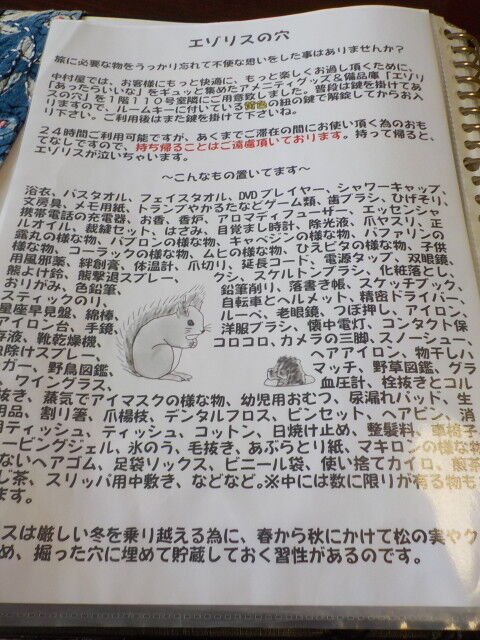 エゾリスの穴
旅に必要な物をうっかり忘れて不便な思いをした事はありませんか？
中村屋では、お客様にもっと快適に、もっと楽しくお過し頂くために、
「あったらいいな」をギュッと集めたアメニティグッズ＆備品庫「エゾリ
スの穴」を１階１１０号室隣にご用意致しました。普段は鍵を掛けてあ
りますので、ルームキーに付いている黄色の紐の鍵で解錠してからお入
り下さい。ご利用後はまた鍵を掛けて下さいね。
２４時間ご利用可能ですが、あくまでご滞在の間にお使い頂く為のおも
てなしですので、持ち帰ることはご遠慮頂いております。持って帰ると、
エゾリスが泣いちゃいます。
～こんなもの置いてます～
浴衣、バスタオル、フェイスタオル、DVDプレイヤー、シャワーキャップ、
文房具、メモ用紙、トランプやかるたなどゲーム類、歯ブラシ、ひげそり、
携帯電話の充電器、お香、香炉、アロマディフューザー、エッセンシャ
ルオイル、裁縫セット、はさみ、目覚まし時計、除光液、爪ヤスリ、正
露丸の様な物、パブロンの様な物、キャベジンの様な物、バファリンの
様な物、コーラックの様な物、ムヒの様な物、ひえピタの様な物、子供
用風邪薬、絆創膏、体温計、爪切り、延長コード、電源タップ、双眼鏡、
熊よけ鈴、熊撃退スプレー、 クシ、スケルトンブラシ、化粧落とし、
おりがみ、色鉛筆、 鉛筆削り、落書き帳、スケッチブック、
スティックのり、 自転車とヘルメット、精密ドライバー、
星座早見盤、綿棒、 ルーペ、老眼鏡、つぼ押し、アイロン、
アイロン台、手鏡、 洋服ブラシ、懐中電灯、コンタクト保
存液、靴乾燥機、 コロコロ、カメラの三脚、スノーシュー、
虫除けスプレー、 ヘアアイロン、物干しハ
ガー、野鳥図鑑、 マッチ、野草図鑑、グラ
、ワイングラス、 血圧計、栓抜きとコル
抜き、蒸気でアイマスクの様な物、幼児用おむつ、尿漏れパッド、生
用品、割り箸、爪楊枝、デンタルフロス、ピンセット、ヘアピン、消
用ティッシュ、ティッシュ、コットン、日焼け止め、整髪料、車椅子
ービングジェル、氷のう、毛抜き、あぶらとり紙、マキロンの様な物
ないヘアゴム、足袋ソックス、ビニール袋、使い捨てカイロ、煎茶
し茶、スリッパ用中敷き、などなど。※中には数に限りが有る物も
ます。
スは厳しい冬を乗り越える為に、春から秋にかけて松の実やク
め、掘った穴に埋めて貯蔵しておく習性があるのです。